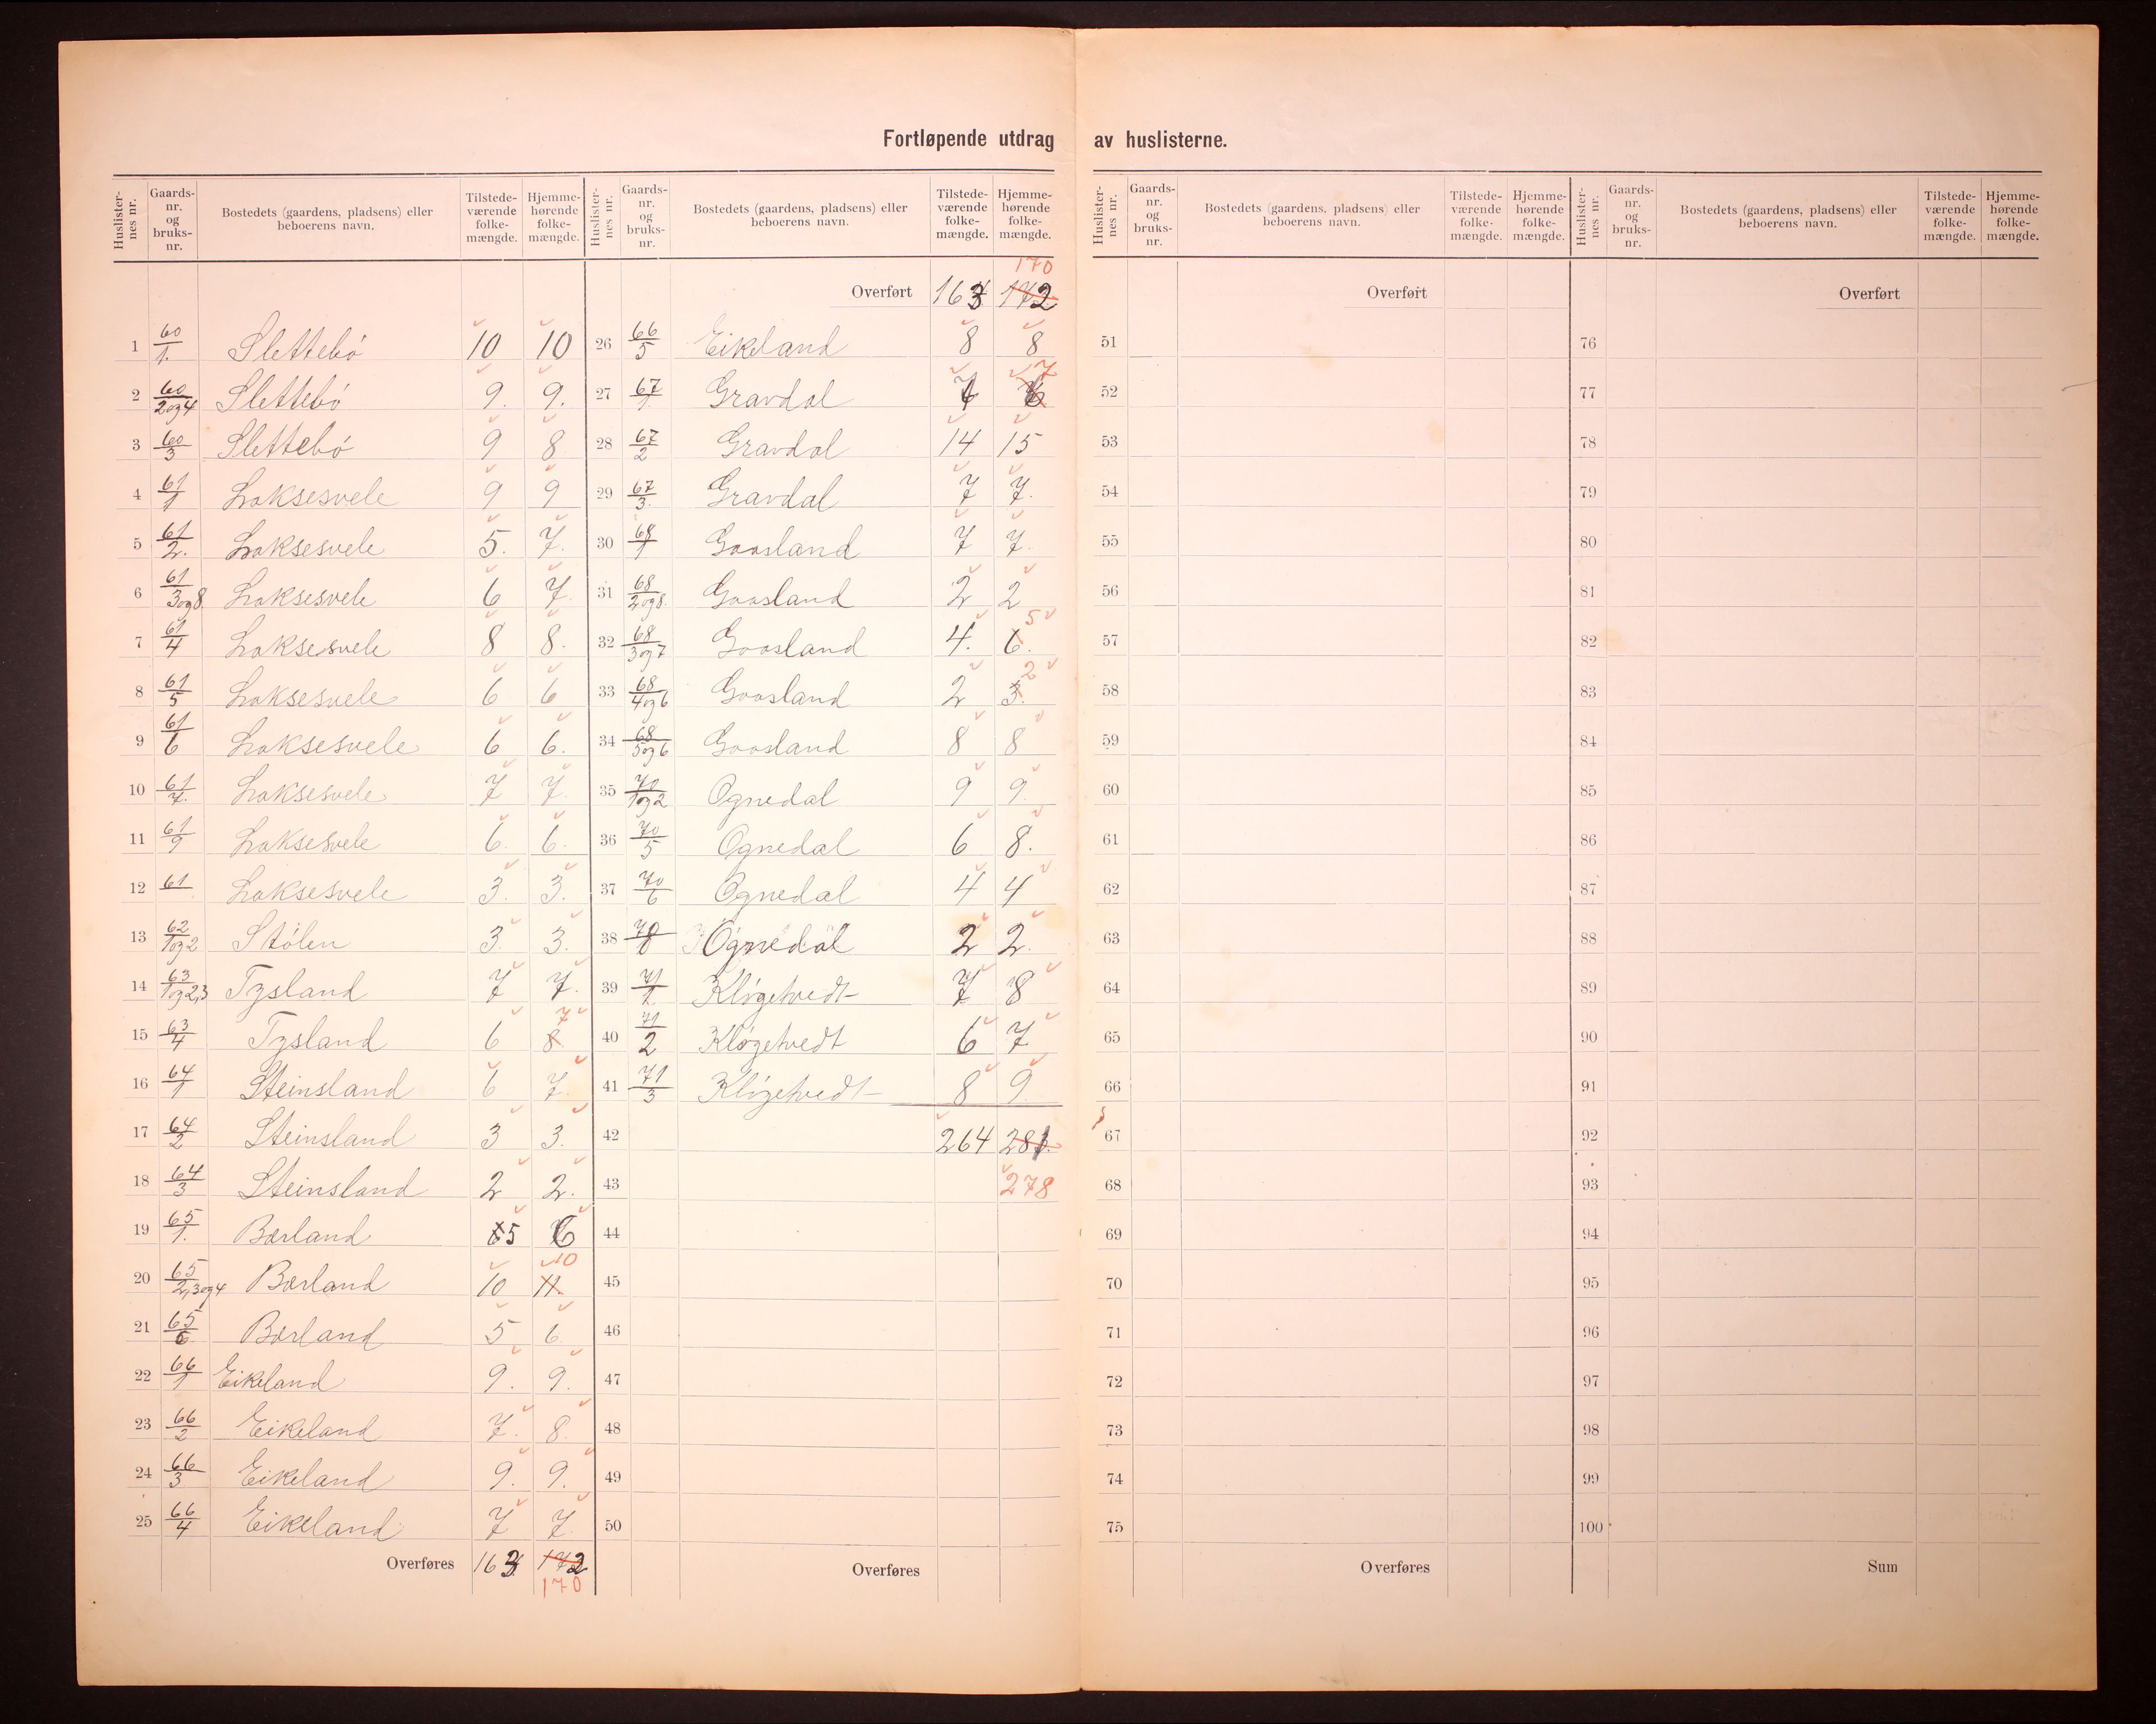 Fortløpende utdrag av huslisterne.
Huslister-nes nr. | Gaards-nr. og bruks-nr. | Bostedets (gaardens, pladsens) eller beboerens navn. | Tilstede-værende folke-mængde. | Hjemme-hørende folke-mængde.
1 60/1. Slettebö 10 10
2 60/2og4 Slettebö 9. 9.
3 60/3 Slettebö 9 8
4 61/1 Laksesvele 9 9
5 61/2. Laksesvele 5. 7.
6 61/3og8. Laksesvele 6 7.
7 61/4 Laksesvele 8 8.
8 61/5 Laksesvele 6 6
9 61/6 Laksesvele 6 6.
10 61/7. Laksesvele 7 7.
11 61/9 Laksesvele 6. 6.
12 61 Laksesvele 3. 3.
13 62/1og2 Stölen 3. 3.
14 63/1og2,3 Tysland 7 7.
15 63/4 Tysland 6 8 7
16 64/1 Steinsland 6 7
17 64/2 Steinsland 3 3.
18 64/3 Steinsland 2 2.
19 65/1. Bærland 5 6
20 65/2,3og4 Bærland 10 11. 10
21 65/6 Bærland 5 6
22 66/1 Eikeland 9. 9.
23 66/2 Eikeland 7. 8.
24 66/3 Eikeland 9. 9.
25 66/4 Eikeland 7 7.
Overføres 163 172
170
Huslister-nes nr. | Gaards-nr. og bruks-nr. | Bostedets (gaardens, pladsens) eller beboerens navn. | Tilstede-værende folke-mængde. | Hjemme-hørende folke-mængde.
170
Overført 163 172
26 66/5 Eikeland 8 8
27 67/1. Gravdal 7 6 7
28 67/2 Gravdal 14 15
29 67/3. Gravdal 7 7.
30 68/1 Gaasland 7 7.
31 68/2og8. Gaasland 2 2
32 68/3og7 Gaasland 4. 6. 5
33 68/4og6 Gaasland 2 3. 2
34 68/5og6 Gaasland 8 8
35 70/1og2 Ognedal 9 9.
36 70/5 Ognedal 6 8.
37 70/6 Ognedal 4 4
38 70/8 Ognedal 2 2.
39 71/1. Klögetvedt 7 8
40 71/2 Klögetvedt 6 7
41 71/3 Klögetvedt 8 9.
42 264 281.
43 278
44
45
46
47
48
49
50
Overføres
Huslister-nes nr. | Gaards-nr. og bruks-nr. | Bostedets (gaardens, pladsens) eller beboerens navn. | Tilstede-værende folke-mængde. | Hjemme-hørende folke-mængde.
Overført
51
52
53
54
55
56
57
58
59
60
61
62
63
64
65
66
67
68
69
70
71
72
73
74
75
Overføres
Huslister-nes nr. | Gaards-nr. og bruks-nr. | Bostedets (gaardens, pladsens) eller beboerens navn. | Tilstede-værende folke-mængde. | Hjemme-hørende folke-mængde.
Overført
76
77
78
79
80
81
82
83
84
85
86
87
88
89
90
91
92
93
94
95
96
97
98
99
100
Sum